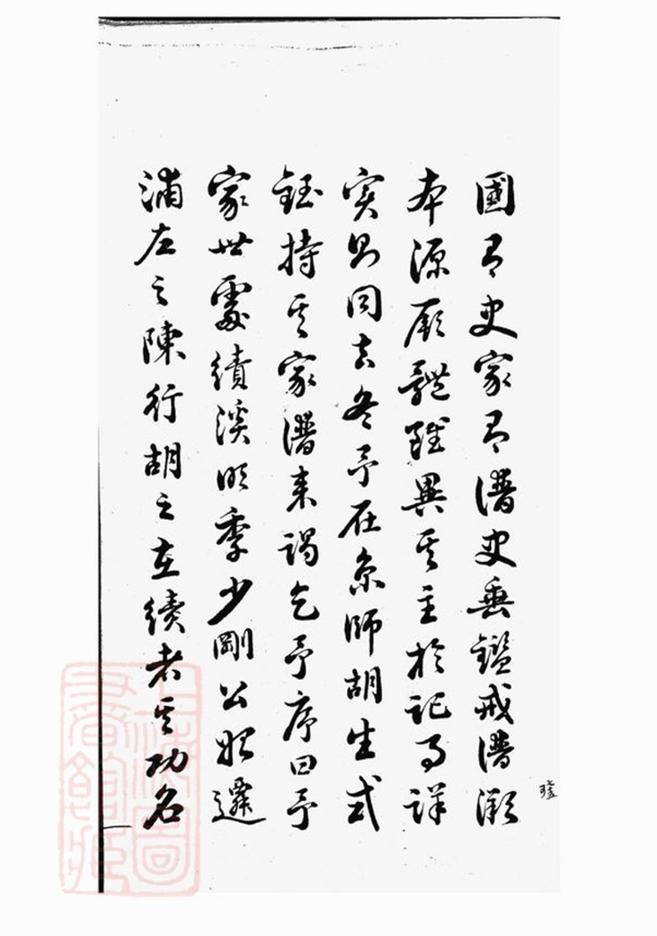 國有史家有譜史垂鑑戒譜溯
本源厥體雖異其主於記事詳
实則同去冬予在京師胡生式
鈺持其家譜来謁乞予序曰予
家世處績溪明季少剛公始遷
浦左之陳行胡之在績者其功名
上海圖
書館藏